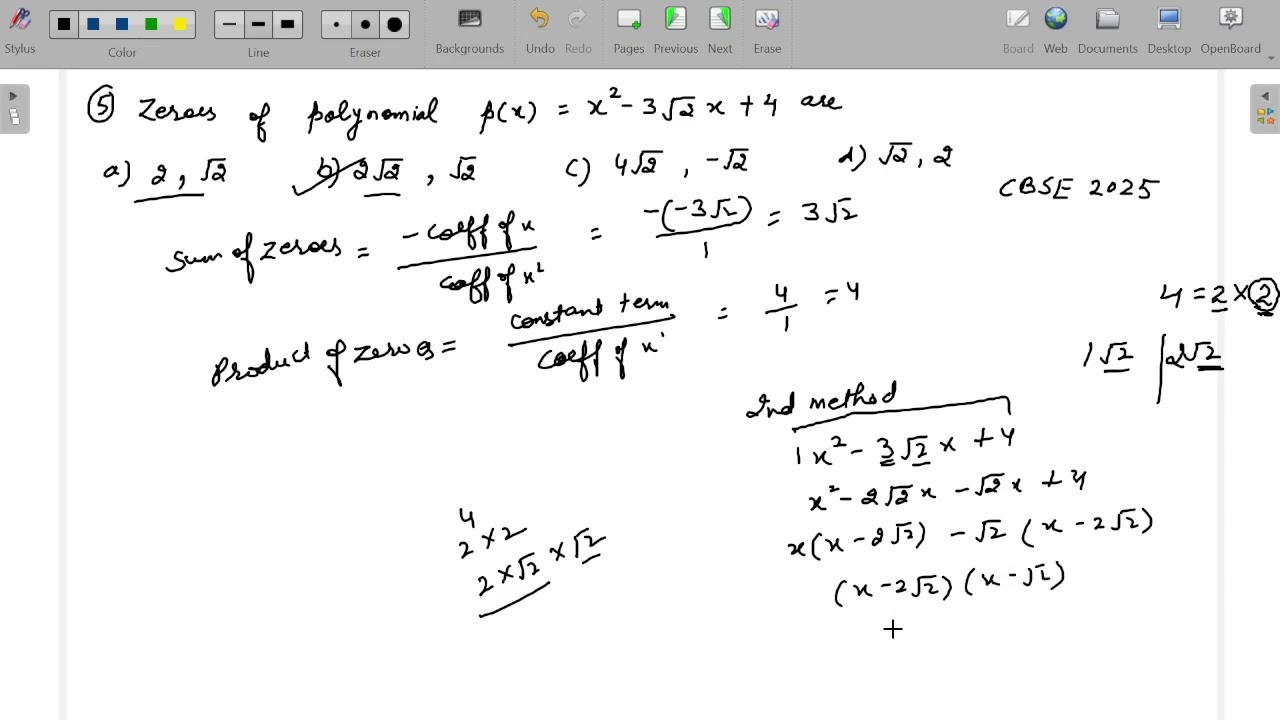 Stylus
Color
Line
Eraser
Backgrounds
Undo
Redo
Pages
Previous
Next
Erase
Board
Web
Documents
Desktop
OpenBoard
⑤ Zeroes of polynomial p(x) = x² - 3√2 x + 4 are
a) 2, √2 b) 2√2, √2 c) 4√2, -√2 d) √2, 2
CBSE 2025
Sum of zeroes = -coeff of x / coeff of x² = -(-3√2) / 1 = 3√2
Product of zeroes = constant term / coeff of x² = 4/1 = 4
4 = 2 × 2
1√2 | 2√2
2nd method
1x² - 3√2 x + 4
x² - 2√2x - √2x + 4
x(x - 2√2) - √2 (x - 2√2)
(x - 2√2) (x - √2)
4
2 × 2
2 × √2 × √2